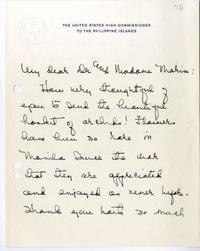 76
THE UNITED STATES HIGH COMMISSIONER
TO THE PHILIPPINE ISLANDS
My dear Dr and Madame
How very thoughtful of
you to send the beautiful
basket of orchids! Flowers
have been so rare in
Manila since the war
that they are appreciated
and enjoyed as never before.
Thank you both so much